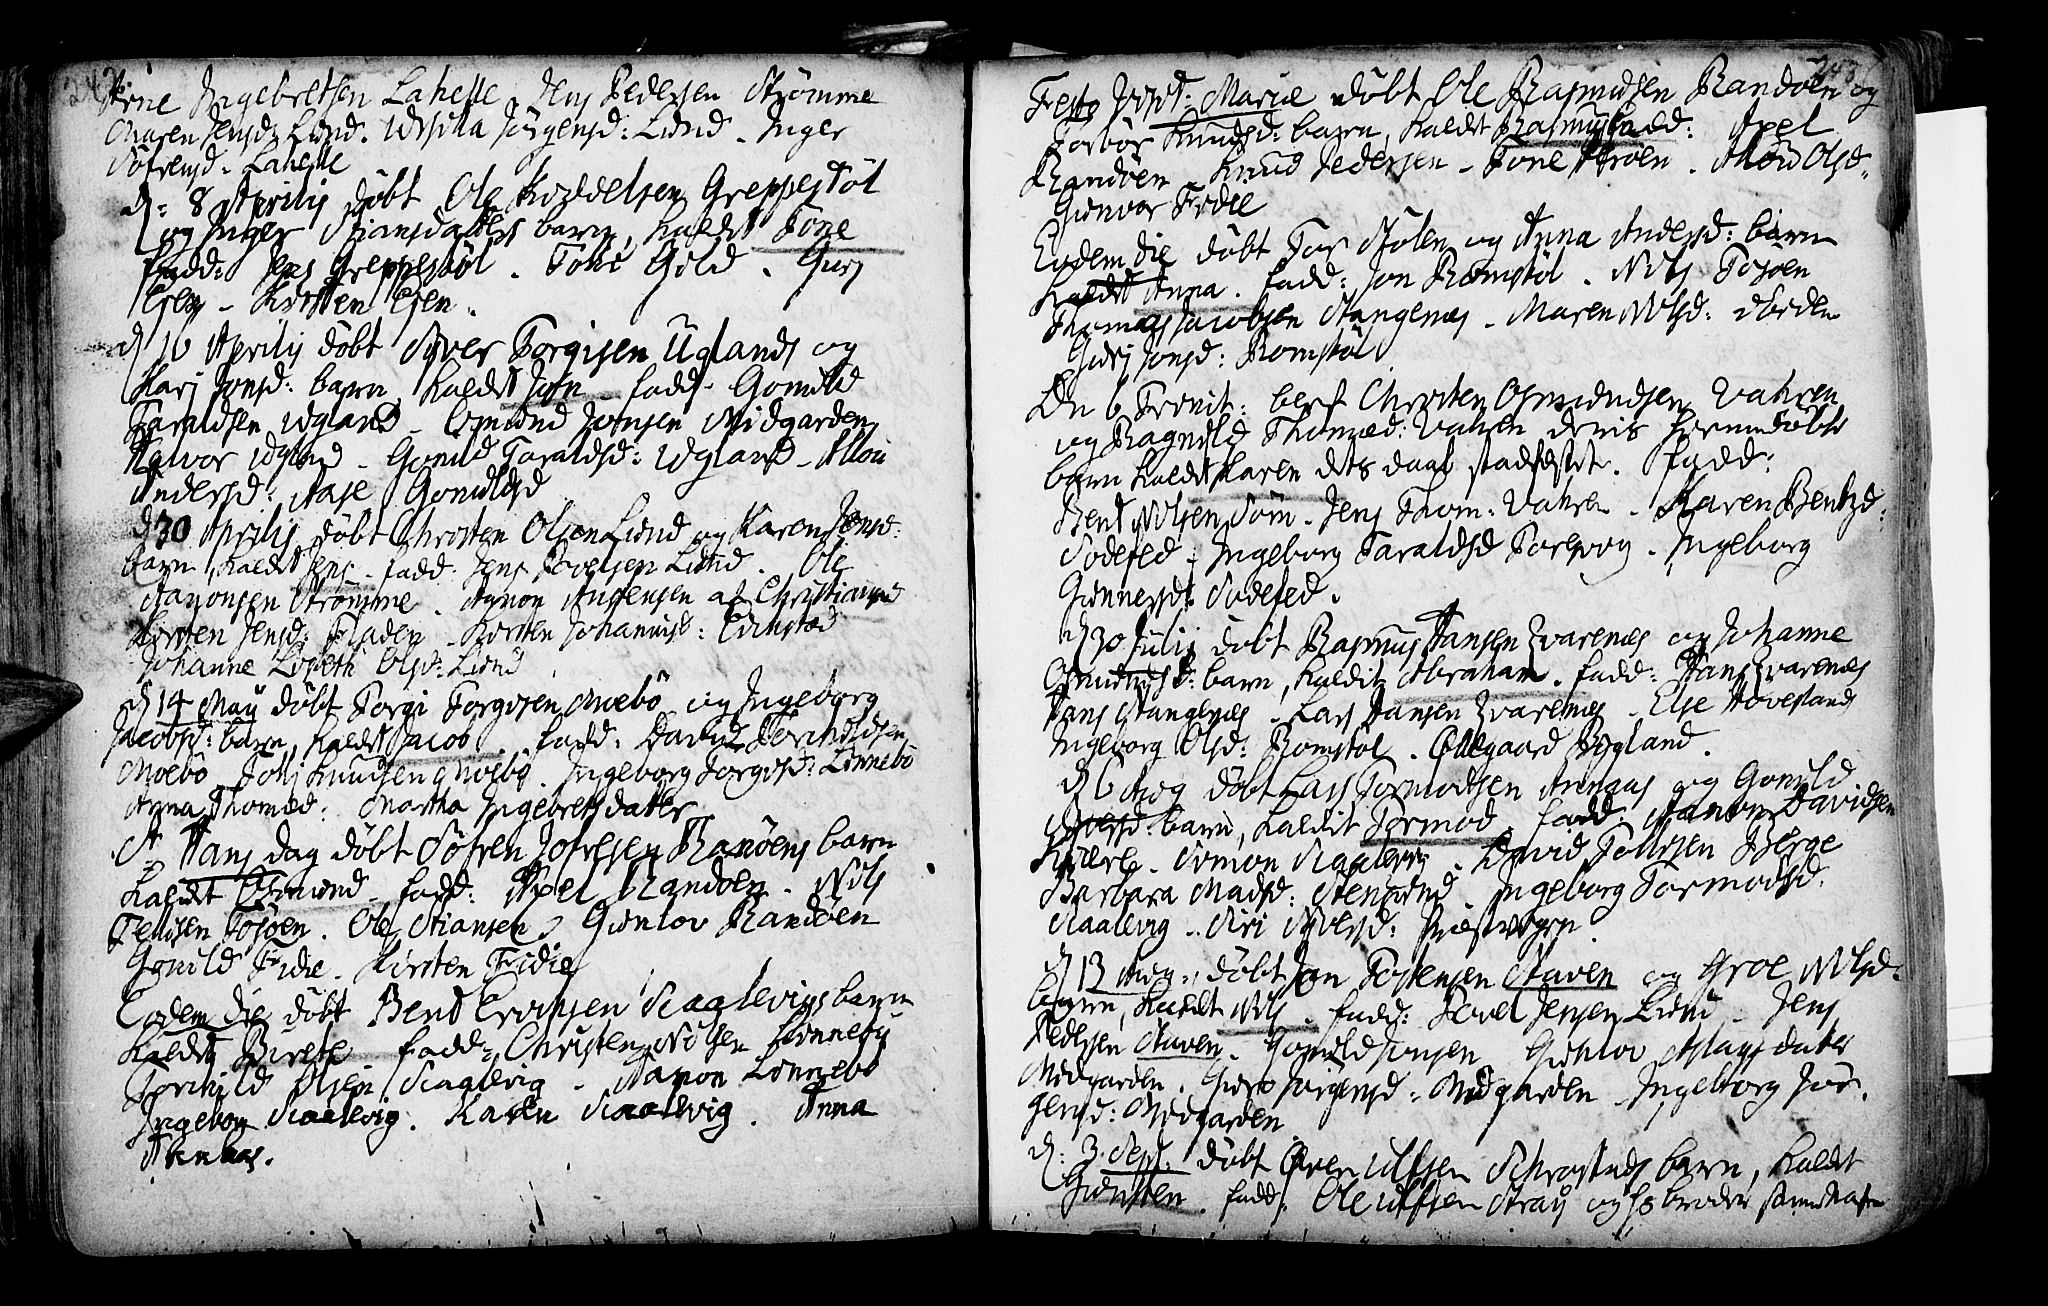 Arne Ingebretsen Lahelle, Jens Pedersen Strømme
Maren Jensd: Lund. Ursula Jørgensd: Lund. Inger
Søfrensd. Lahelle
d: 8 Aprilis døbt Ole Kieldelsen Greppestøl
og Inger Stiansdatters barn, kaldet Tone
fadd: Jens Greppestøl. Tone Gild. Guri
Egen - Kirsten Egen.
d 16 Aprilis døbt Syver Torgisen Uglands og
Kari Jonsd: barn, kaldet John fadd. Gonild
Taraldsen Ugland. Osmund Jonsen Midgarden
Halvor Ugland - Gonild Taraldsd: Ugland -
Andersd: Aase Gonildsd
d 30 Aprilis døbt Christen Olsen Lund og Karen Jensd:
barn, kaldet Jens. fadd: Jens Povelsen Lund. Ole
Aanonsen Strømme. Aanon Andersen af Christiansand
Kirsten Jensd: Fladen - Kirsten Johannisd: Grimstad
Johanne Lisbeth Olsd: Lund
d 14 May døbt Torgi Torgisen Moebø og Ingeborg
Jacobsd: barn, kaldet Jacob. fadd: David Torkildsen
Moebø. Knudsen Moebø. Ingeborg Torgisd: Linnebø
Anna Thomæd: Martha Ingebretsdatter
St Hans dag døbt Søfren Jofresen Randøens barn
kaldet Osmond. fadd: Axel Randøen. Nils
Tellisen Tosøen. Ole Stiansen Gunlov Randøen
Gonild Fidie. Kirsten Fidie
Eodem die døbt Bent Evensen Kaalevigs barn
kaldet Birete fadd: Christen Nilsen Linnebø
Torkild Olsen Kaalevig - Aanon Linnebø
Ingebor Kaalevig. Karen Kaalevig. Anna

243
Festo Visit: Mariæ døbt Ole Rasmusen Randøen og
Torbor Knudsd: barn, kaldet Rasmus fadd: Axel
Randøen - Knud Pedersen - Tone Kroen. Olsd.
Gunvor Fidie
Eodem die døbt Tor Stølen og Anna Andersd: barn
kaldet Anna. fadd: Jon Romstøl. Nils Tosøen
Thomas Jacobsen Stangenæs - Maren Nilsd:
Guri Jonsd: Romstøl
Dn 6 Trinit: blef Christen Osmundsen Vahren
og Ragnild Thomæd: Vahren deris hiemmedøbte
barn kaldet Karen dets daab stadfestet. fadd:
Bent Nilsen Søm. Jens Thom: Vahren - Karen Bentzd:
Sodefed. Ingeborg Taraldsd Torsvog. Ingeborg
Gunnersd: Sodefed.
d 30 Julij døbt Rasmus Hansen Qvarenæs og Johanne
Osmundsd: barn, kaldet Abraham. fadd: Hans Qvarenæs
Hans Stangenæs - Lars Hansen Qvarenæs - Else Hovestand
Ingeborg Olsd: Romstøl. Ollegaard Bygland.
d 6 Aug døbt Lars Tormodsen og Gonild
barn, kaldet Tormod. fadd. Aanon Davidsen
Simon Kaalevig. David Tollisen Berge
Barbara Madsd: Stensund. Ingeborg Tormodsd.
Kaalevig. Siri Syversd:
d 13 Aug: døbt Jon Tostensen Staven og Groe Nilsd:
barn, kaldet Nils. fadd: Povel Jensen Lund - Jens
Pedersen Staven. Gonild Jonsen Gunlov Aslagsdatter
Midgarden. Guro Jørgensd: Midgarden. Ingeborg Jør-
gensd: Midgarden
d: 3 Sept. døbt Even Ulfsen barn, kaldet
Gunsten. fadd: Ole Ulfsen Straj og hs broder